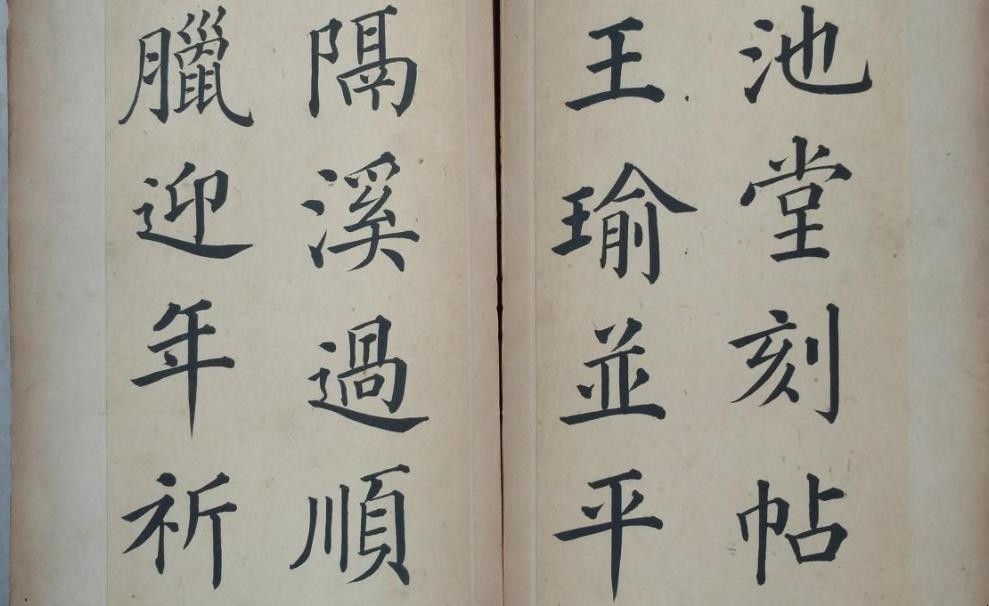 池堂刻帖
王瑜並平
隔溪過順
臘迎年祈